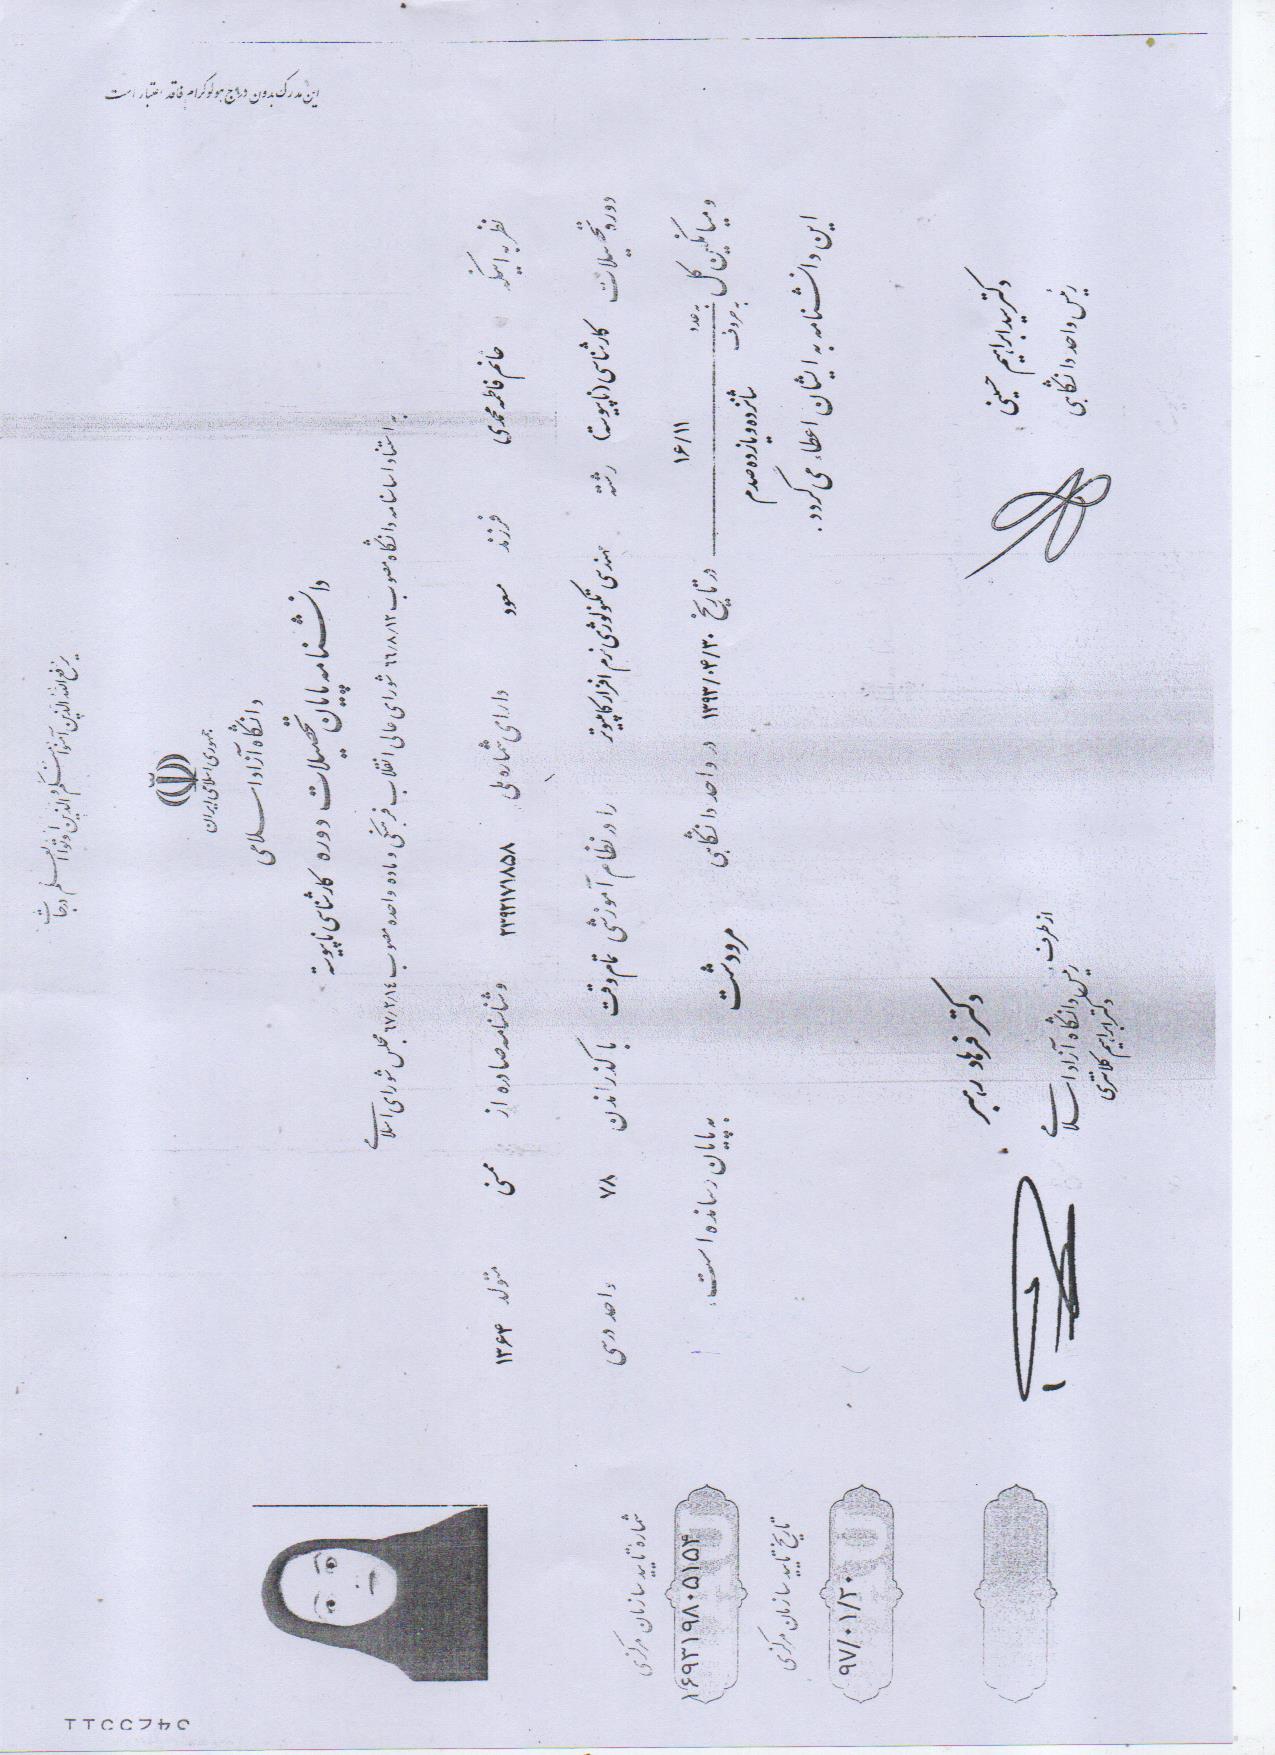 یرفع الله الذین آمنوا منکم و الذین اوتوا العلم درجات
این مدرک بدون درج هولوگرام فاقد اعتبار است
جمهوری اسلامی ایران
دانشگاه آزاد اسلامی
دانشنامه پایان تحصیلات دوره کارشناسی ناپیوسته
به استناد اساسنامه دانشگاه مصوب ۶۶/۸/۱۲ شورای عالی انقلاب فرهنگی و ماده واحده مصوب ۶۷/۲/۱٤ مجلس شورای اسلامی
نظر به اینکه خانم فاطمه محمدی فرزند مسعود دارای شماره ملی ۲۳۹۲۱۷۱۸۵۸ و شناسنامه صادره از ممسنی متولد ۱۳۶۴
دوره تحصیلات کارشناسی (ناپیوسته) رشته مهندسی تکنولوژی نرم افزار کامپیوتر را در نظام آموزشی تمام وقت با گذراندن ۷۸ واحد درسی
و میانگین کل به عدد ۱۶/۱۱ به حروف شانزده و یازده صدم در تاریخ ۱۳۹۳/۰۴/۳۰ در واحد دانشگاهی مرودشت به پایان رسانده است.
این دانشنامه به ایشان اعطاء می گردد.
دکتر سید ابراهیم حسینی
رئیس واحد دانشگاهی
دکتر فرهاد رهبر
از طرف
رئیس دانشگاه آزاد اسلامی
دکتر ابراهیم کلانتری
شماره تایید سازمان مرکزی
۱۶۹۳۱۹۸۰۵۱۵۴
تاریخ تایید سازمان مرکزی
۹۷/۰۱/۲۰